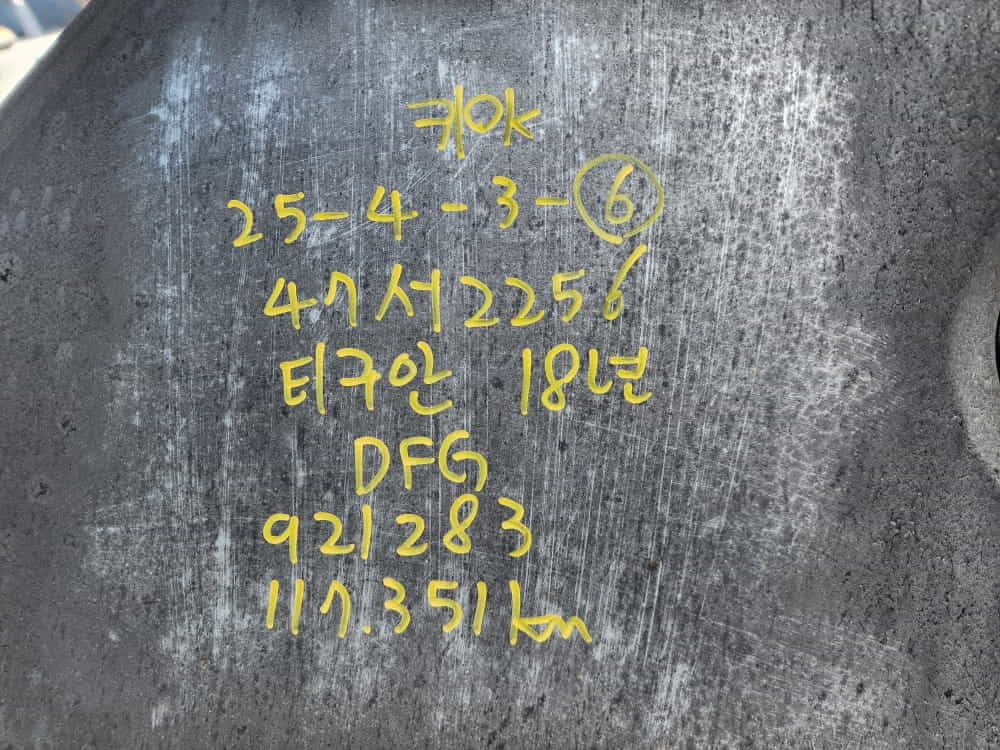 키OK
25-4-3-6
47서2256
티구안 18년
DFG
921283
117.351km